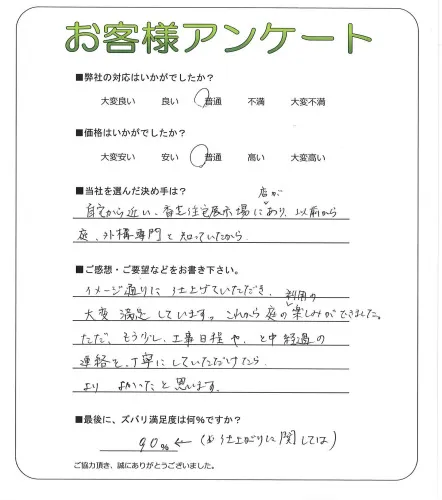 お客様アンケート
■弊社の対応はいかがでしたか?
大変良い 良い 普通 不満 大変不満
■価格はいかがでしたか?
大変安い 安い 普通 高い 大変高い
■当社を選んだ決め手は?
店が
自宅から近い、香芝住宅展示場にあり、以前から
庭、外構専門と知っていたから
■ご感想・ご要望などをお書き下さい。
イメージ通りに仕上げていただき、
利用の
大変満足しています。これから庭の楽しみができました。
ただ、もう少し、工事日程や、と中経過の
連絡を、丁寧にしていただけたら
より よかったと思います。
■最後に、ズバリ満足度は何%ですか?
90%←(仕上がりに関しては)
ご協力頂き、誠にありがとうございました。